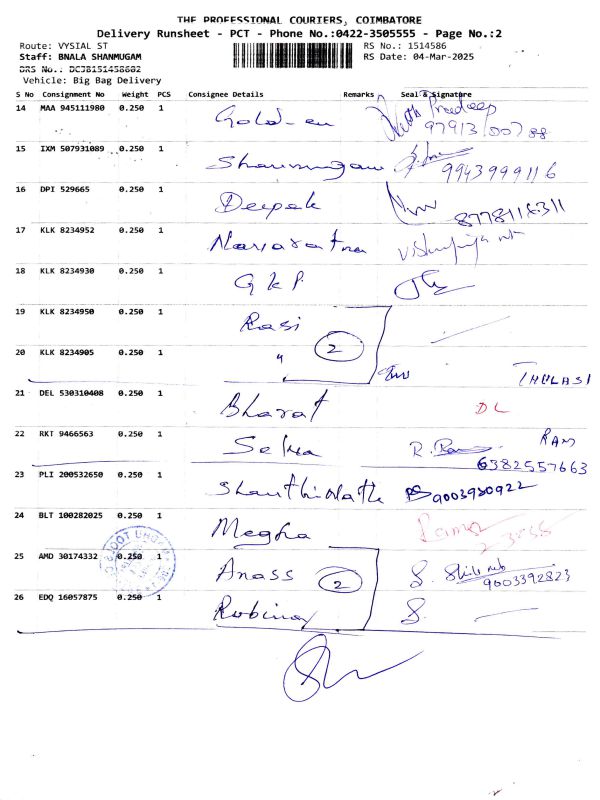 THE PROFESSIONAL COURIERS, COIMBATORE
Delivery Runsheet - PCT - Phone No.:0422-3505555 - Page No.:2
Route: VYSIAL ST RS No.: 1514586
Staff: BNALA SHANMUGAM RS Date: 04-Mar-2025
DRS No.: DCJB151458602
Vehicle: Big Bag Delivery
S No Consignment No Weight PCS Consignee Details Remarks Seal & Signature
14 MAA 945111980 0.250 1 Gold-en Pradeep
97913 00788
15 IXM 507931089 0.250 1 Shanmugam 9943999116
16 DPI 529665 0.250 1 Deepak 8778118311
17 KLK 8234952 0.250 1 Navaratna
18 KLK 8234930 0.250 1 GKP
19 KLK 8234950 0.250 1 Rasi 2
20 KLK 8234905 0.250 1 " THULASI
21 DEL 530310408 0.250 1 Bharat DL
22 RKT 9466563 0.250 1 Selva R. RAM
6382557663
23 PLI 200532650 0.250 1 9003980922
24 BLT 100282025 0.250 1 Megha
25 AMD 30174332 0.250 1 Anass 2 9003392823
26 EDQ 16057875 0.250 1